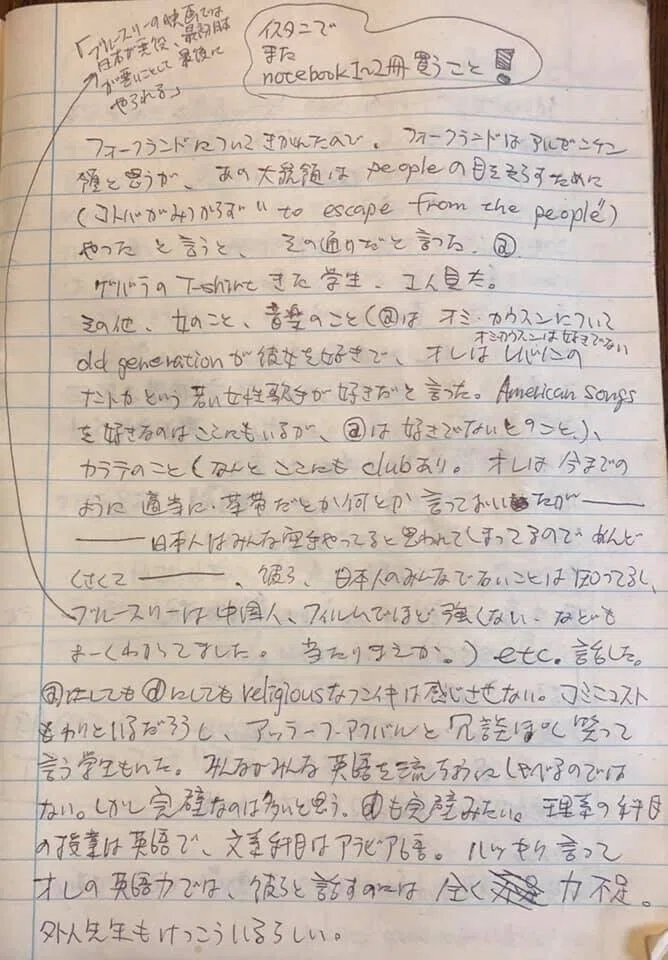 「ブルースリーの映画では
日本が悪役、最初日本
が悪いことして最後に
やられる」
イスタンで
また
notebook 1つ2冊買うこと
フォークランドについてきかれたので、フォークランドはアルゼンチン
領と思うが、あの大統領は peopleの目をそらすために
(コトバがみつからず "to escape from the people")
やったと言うと、その通りだと言った、ⓐ.
ゲバラの T-shirt きた学生、1人見た。
その他、女のこと、音楽のこと(ⓐは オミ・カウスンについて
オミカウスンは好きでない
old generationが彼女を好きで、オレは レバノンの
ナントカという若い女性歌手が好きだと言った。American songs
を好きなのはここにもいるが、ⓐは好きでないとのこと。)、
カラテのこと(なんとここにも clubあり。オレは今までの
ように適当に・茶帯だとか何とか言っておいたが――
――日本人はみんな空手やってると思われてしまってるのでめんど
くさくて――、彼ら、日本人のみんなでないことは知ってるし、
ブルースリーは中国人、フィルムでほど強くない、なども
よーくわかってました。当たりまえか。) etc. 話した。
ⓐにしてもⓓにしても religiousなフンイキは感じさせない。コミニュスト
もわりといるだろうし、アッラーフ・アクバルと冗談ぽく笑って
言う学生もいた。みんながみんな英語を流ちょうにしゃべるのでは
ない。しかし完璧なのは多いと思う、ⓓも完璧みたい。理系の科目
の授業は英語で、文系科目はアラビア語。ハッキリ言って
オレの英語力では、彼らと話すのには 全く 力不足。
外人先生もけっこういるらしい。